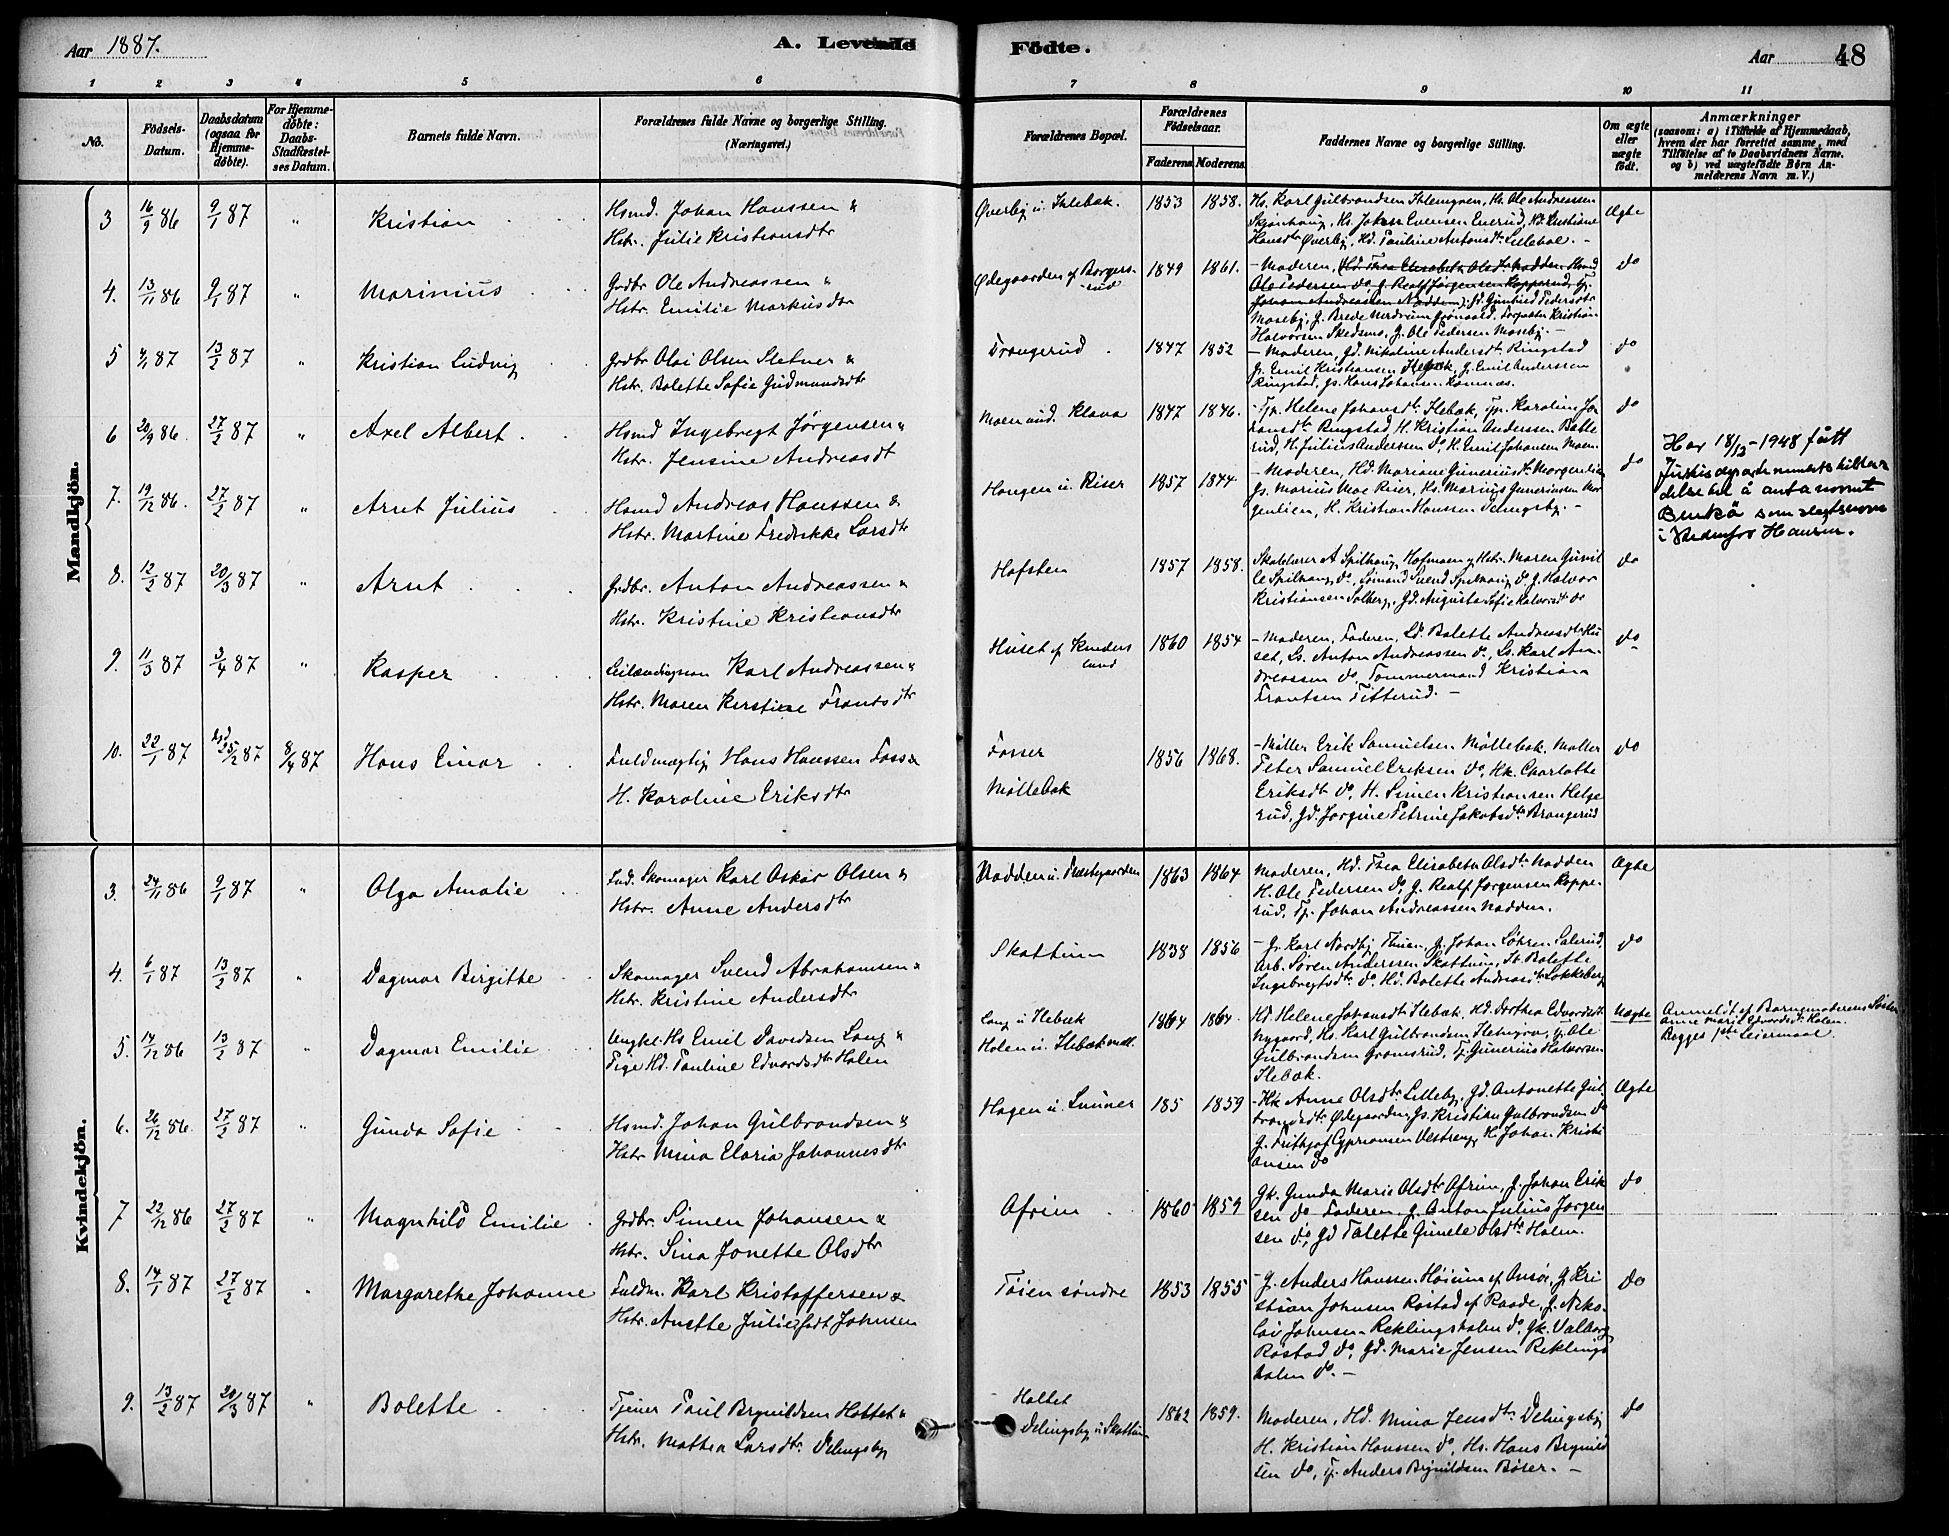 Aar 1887.
A. Levende
Födte.
Aar
48
1 2 3 4 5 6
7 8 9 10 11
No.
Födsels-
Datum.
Daabsdatum
(ogsaa for
Hjemme-
döbte).
For Hjemme-
döbte:
Daabs-
Stadfæstel-
ses Datum.
Barnets fulde Navn.
Forældrenes fulde Navne og borgerlige Stilling.
(Næringsvei.)
Forældrenes Bopæl.
Forældrenes
Födselsaar.
Faderens. Moderens.
Faddernes Navne og borgerlige Stilling.
Om ægte
eller
uægte
födt.
Anmærkninger
(saasom: a) i Tilfælde af Hjemmedaab,
hvem der har forrettet samme, med
Tilföielse af to Daabsvidners Navne,
og b) ved uægtefödte Börn An-
melderens Navn m. V.)
Mandkjön.
3 16/9 86 9/1 87 " Kristian
Hsmd. Johan Hanssen &
Hstr. Julie Kristiansdtr
Øverby u. Ilebæk. 1853 1858.
Hs. Karl Gulbrandsen Ilemoen, Hs. Ole Andreassen
Hansdtr Øverby, Hd. Pauline Antonsdtr Lillebæk. -
Ægte
4. 13/11 86 9/1 87 " Marinius
Grdbr Ole Andreassen &
Hstr. Emilie Markusdtr
Ødegaarden af Borgers-
rud
1849 1861.
- Moderen, Hd. Thea Elisabeth Olsdtr Nadden
Ole Pedersen do, G. Realf Jørgensen Kopperud,
Johan Andreassen Nadden
Halvorsen Skedsmo, G. Ole Pedersen Moseby. -
do
5 4/1 87 13/2 87 " Kristian Ludvig
Grdbr Olai Olsen Sletner &
Hstr. Bolette Sofie Gudmundsdtr
Trangerud. 1847 1852
- Moderen, Gd. Nikoline Andersdtr Ringstad
G. Emil Kristiansen Ilebæk, G. Emil Anderssen
Ringstad, Gs. Hans Johansen Romnæs.
do
6 20/9 86. 27/2 87 " Axel Albert.
Hsmd Ingebregt Jørgensen &
Hstr. Jensine Andreasdt
Moen und. Klava 1847 1846.
- Tp. Helene Johansdtr Ilebæk, Tp. Karoline Jo-
hansdtr Ringstad, H. Kristian Anderssen Batte
rud, H. Julius Anderssen do, H. Emil Johansen Moen
do
7. 19/12 86. 27/2 87 " Arnt Julius
Hsmd Andreas Hanssen &
Hstr. Martine Fredrikke Larsdtr
Haugen u. Riser 1857 1844
- Moderen, Hd. Mariane Gunerius dtr Morgenlien
Gs. Marius Moe Riser, Hs. Marius Gunerussen Mor
genlien, H. Kristian Hanssen Delingsby. -
do
Har 18/12-1948 fått
Justisdepartementets tillatelse til å anta navnet
Benkå som slektsnavn
i stedenfor Hansen.
8. 12/2 87 20/3 87 " Arnt
Grdbr. Anton Andreassen &
Hstr. Kristine Kristiansdtr
Hafsten 1857 1858.
Skolelærer A. Spilhaug, Hafmoen, Hstr. Maren Gunil
de Spilhaug do, Sømand Svend Spilhaug do, G. Halvor
Kristiansen Solberg, Gd. Augusta Sofie Halvorsdt do
do
9. 11/3 87 3/4 87 " Kasper
Leilændingson Karl Andreassen &
Hstr. Maren Kirstine Frantsdtr
Huset af Kinders
lund
1860 1854
- Moderen, Faderen, Ld. Bolette Andreasdtr Hu
set, Ls. Anton Andreassen do, Ls. Karl An-
dreassen do, Tømmermand Kristian
Frantsen Fitterud. -
do
10. 22/1 87 25/2 87 8/4 87 Hans Einar
Fuldmægtig Hans Hanssen Foss &
H. Karoline Eriksdtr
Fosser
Møllebæk
1856 1868.
- Møller Erik Samuelsen Møllebæk. Møller
Peter Samuel Eriksen do, Hk. Charlotte
Eriksdtr do, H. Simen Kristiansen Helge
rud, Gd. Jørgine Petrine Jakobsdtr Brangerud
do
Kvindekjön.
3. 24/11 86 9/1 87 " Olga Amalie
Ind. Skomager Karl Oskar Olsen &
Hstr. Anne Andersdtr
Nadden u. Præstegaarden 1863 1864
Moderen, Hd. Thea Elisabeth Olsdtr Nadden
H. Ole Pedersen do, G. Realf Jørgensen Koppe-
rud, Tp. Johan Andreassen Nadden.
Ægte
4. 6/1 87 13/2 87 " Dagmar Birgitte
Skomager Svend Abrahamsen &
Hstr. Kristine Andersdtr
Skattum 1838 1856
- G. Karl Nordby Thuen, G. Johan Søhren Salerud,
Arb. Søren Anderssen Skattum, St. Bolette
Ingebregtsdtr do, Hd. Bolette Andreasdtr Løkkeberg
do
5. 14/12 86 13/2 87 Dagmar Emilie
Ungkl. Hs Emil Davidsen Lang &
Pige Hd. Pauline Edvardsdtr Holen
Lang u Ilebæk
Holen u. Ilebæk vedl.
1864 1864.
Hd. Helene Johansdt Ilebæk, Hd. Dorthea Edvardsdtr
Nygaard, Hs. Karl Gulbrandsen Ilemoen, G. Ole
Gulbrandsen Gramsrud, Tp. Gunerius Halvorsen
Ilebæk.
Uægte
Anmeldt af Barnemoderens Søster
Anne Marie Edvardsdtr Holen.
Begges 1ste Leiermaal
6. 26/12 86. 27/2 87 " Gunda Sofie
Hsmd. Johan Gulbrandsen &
Hstr Mina Elaria Johannesdtr
Hagen u. Lunner 185 1859
- Hk Anne Olsdtr Lilleby, Gd. Antonette Gul
brandsdtr Ødegaarden, Gs. Kristian Gulbrandsen do
G. Frithjof Cypriansen Vestreng, H. Johan Kristi
ansen do
Ægte
7 22/12 86 27/2 87 " Magnhild Emilie.
Grdbr. Simen Johansen &
Hstr. Sina Jonette Olsdtr
Afrim. 1860 1859
Gk. Gunda Marie Olsdtr Afrim, G. Johan Erik
sen do Faderen, G. Anton Julius Jørgen
sen do, Gd Talette Gunele Olsdtr Holm.
do
8. 14/1 87 27/2 87 " Margarethe Johanne
Fuldm. Karl Kristoffersen &
Hstr. Anette Julie født Johnsen
Tøien søndre 1853 1855
- G. Anders Hanssen Høium af Onsø, G. Kri
stian Johnsen Røstad af Raade, G. Niko-
lai Johnsen Reklingsholm do, Gk. Valborg
Røstad do, Gd. Marie Jensen Reklings
holm do. -
do
9. 13/2 87 20/3 87 " Bolette
Tjener Paul Brynildsen Holtet &
Hstr. Mathea Larsdtr Delingsby
Holtet
Delingsby u Skattum
1862 1859.
Moderen, Hd. Mina Jensdtr Delingsby
H. Kristian Hanssen do, Hs. Hans Brynild
sen do, Tp. Anders Brynildsen Böler. -
do